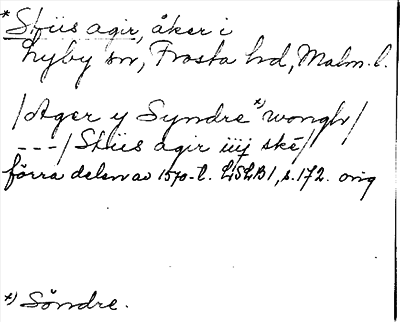 * Stiis agir, åker i
Lyby sn, Frosta hd, Malm. l.
/Ager y Syndre *) wongh/
---/ Stiis agir iiij ske/
förra delen av 1570-t. LSLB1, s. 172. orig
*) Söndre.